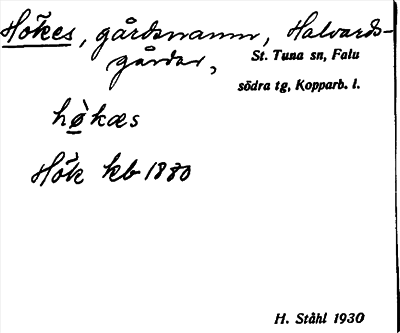 Hökes, gårdsnamn, Halvards-
gårdar,
St. Tuna sn, Falu
södra tg, Kopparb. l.
hø̀kæs
Hök kb 1880
H. Ståhl 1930